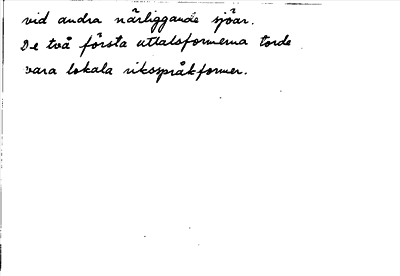 vid andra närliggande sjöar.
De två första uttalsformerna torde
vara lokala riksspråkformer.